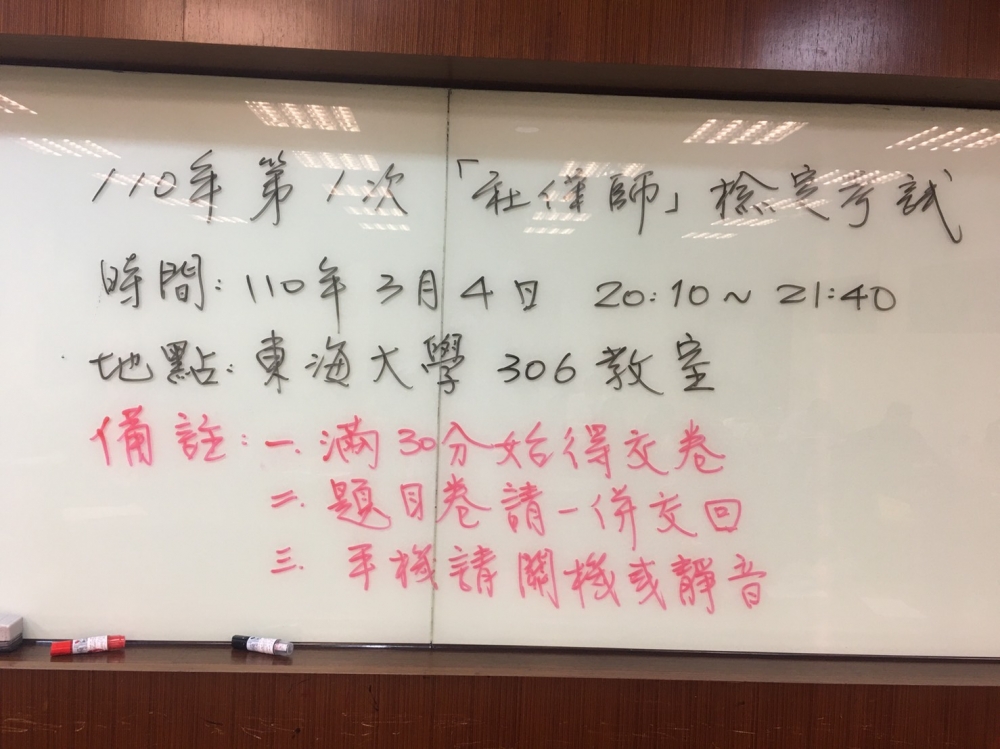 110年第1次「社律師」檢定考試
時間:110年3月4日 20:10~21:40
地點:東海大學306教室
備註:一.滿30分始得交卷
二.題目卷請一併交回
三.手機請關機或靜音